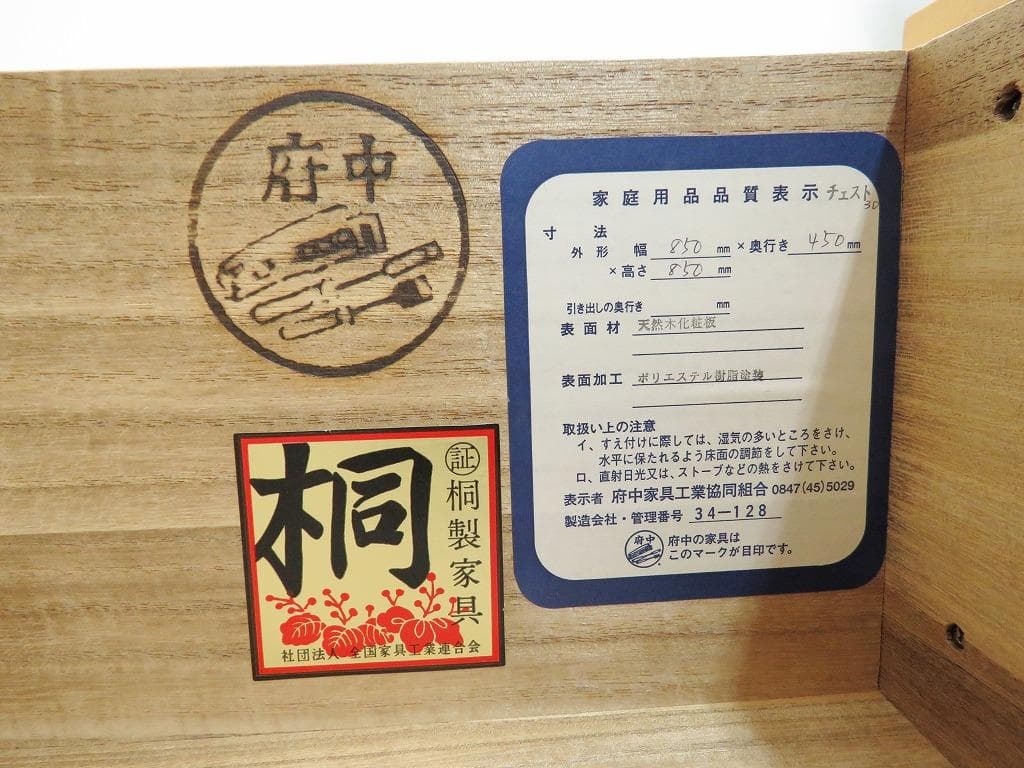 府中
桐
証
桐製家具
社団法人 全国家具工業連合会
家庭用品品質表示 チェスト
30
寸法
外形 幅 850 mm × 奥行き 450 mm
×高さ 850 mm
引き出しの奥行き mm
表面材 天然木化粧板
表面加工 ポリエステル樹脂塗装
取扱い上の注意
イ、すえ付けに際しては、湿気の多いところをさけ、
水平に保たれるよう床面の調節をして下さい。
ロ、直射日光又は、ストーブなどの熱をさけて下さい。
表示者 府中家具工業協同組合 0847(45)5029
製造会社・管理番号 34-128
府中
府中の家具は
このマークが目印です。